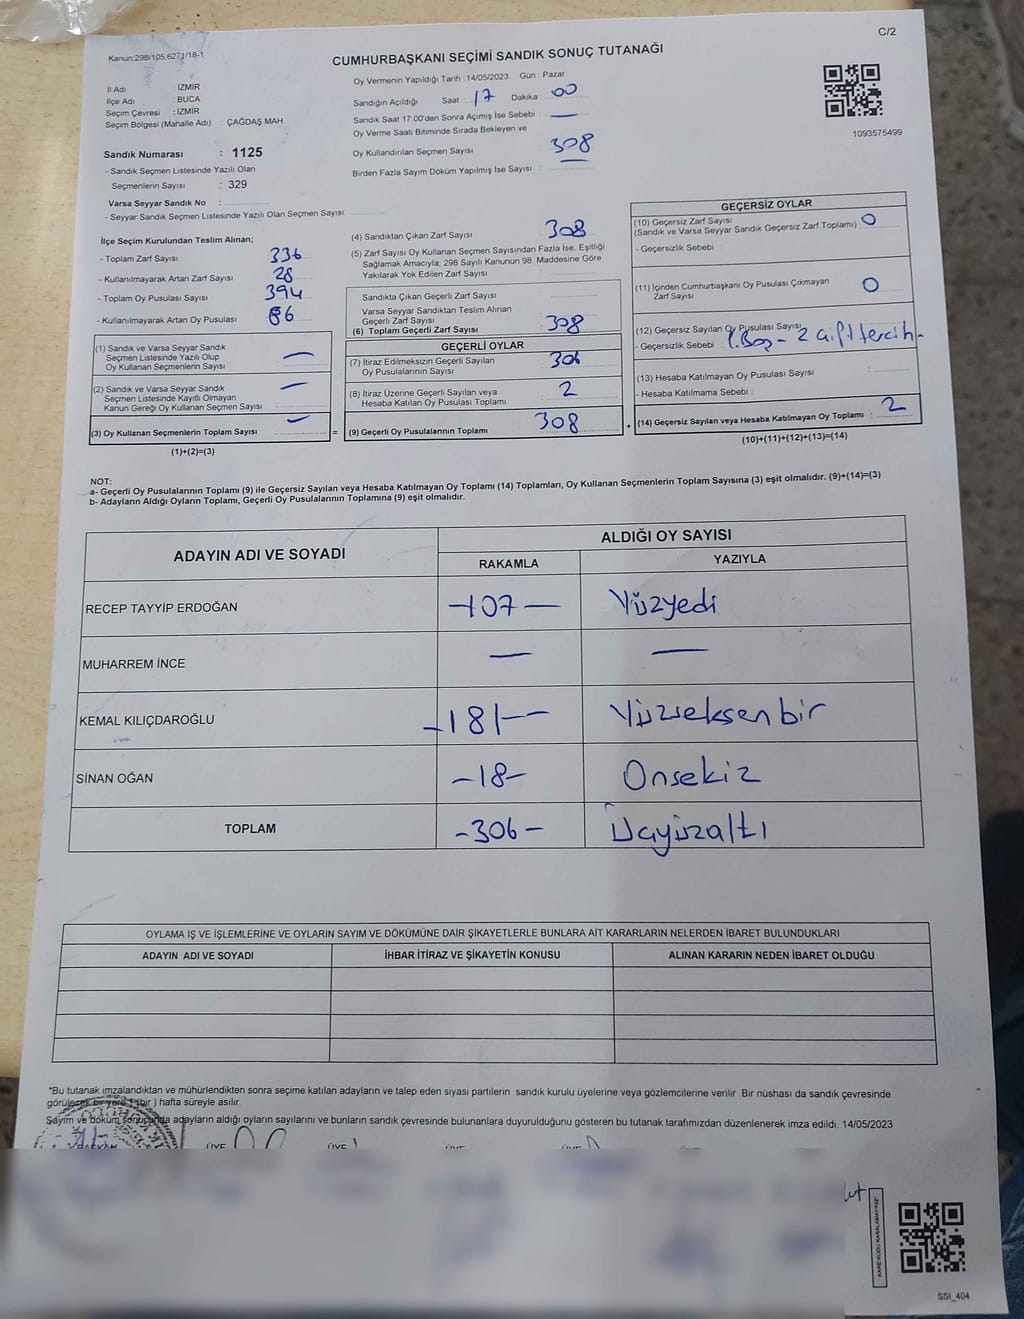 C/2
Kanun:298/105;6271/18-1
CUMHURBAŞKANI SEÇİMİ SANDIK SONUÇ TUTANAĞI
İl Adı : İZMİR
İlçe Adı : BUCA
Seçim Çevresi : İZMİR
Seçim Bölgesi (Mahalle Adı) : ÇAĞDAŞ MAH.
Sandık Numarası : 1125
- Sandık Seçmen Listesinde Yazılı Olan
Seçmenlerin Sayısı : 329
Varsa Seyyar Sandık No :
- Seyyar Sandık Seçmen Listesinde Yazılı Olan Seçmen Sayısı
Oy Vermenin Yapıldığı Tarih : 14/05/2023 Gün : Pazar
Sandığın Açıldığı Saat : 17 Dakika : 00
Sandık Saat 17:00'den Sonra Açımış İse Sebebi : —
Oy Verme Saati Bitiminde Sırada Bekleyen ve
Oy Kullandırılan Seçmen Sayısı 308
Birden Fazla Sayım Döküm Yapılmış İse Sayısı :
1093575499
İlçe Seçim Kurulundan Teslim Alınan;
- Toplam Zarf Sayısı : 336
- Kullanılmayarak Artan Zarf Sayısı : 28
- Toplam Oy Pusulası Sayısı : 394
- Kullanılmayarak Artan Oy Pusulası : 86
(1) Sandık ve Varsa Seyyar Sandık
Seçmen Listesinde Yazılı Olup
Oy Kullanan Seçmen Sayısı : —
(2) Sandık ve Varsa Seyyar Sandık
Seçmen Listesinde Kayıtlı Olmayan
Kanun Gereği Oy Kullanan Seçmen Sayısı : —
(3) Oy Kullanan Seçmenlerin Toplam Sayısı : — =
(1)+(2)=(3)
(4) Sandıktan Çıkan Zarf Sayısı : 308
(5) Zarf Sayısı Oy Kullanan Seçmen Sayısından Fazla İse, Eşitliği
Sağlamak Amacıyla, 298 Sayılı Kanunun 98. Maddesine Göre
Yakılarak Yok Edilen Zarf Sayısı :
Sandıkta Çıkan Geçerli Zarf Sayısı :
Varsa Seyyar Sandıktan Teslim Alınan
Geçerli Zarf Sayısı :
(6) Toplam Geçerli Zarf Sayısı : 308
GEÇERLİ OYLAR
(7) İtiraz Edilmeksizin Geçerli Sayılan
Oy Pusulalarının Sayısı : 306
(8) İtiraz Üzerine Geçerli Sayılan veya
Hesaba Katılan Oy Pusulası Toplamı : 2
(9) Geçerli Oy Pusulalarının Toplamı : 308 +
GEÇERSİZ OYLAR
(10) Geçersiz Zarf Sayısı : 0
(Sandık ve Varsa Seyyar Sandık Geçersiz Zarf Toplamı)
- Geçersizlik Sebebi :
(11) İçinden Cumhurbaşkanı Oy Pusulası Çıkmayan
Zarf Sayısı : 0
(12) Geçersiz Sayılan Oy Pusulası Sayısı
- Geçersizlik Sebebi : 1.Boş - 2 çift tercih-
(13) Hesaba Katılmayan Oy Pusulası Sayısı :
- Hesaba Katılmama Sebebi :
(14) Geçersiz Sayılan veya Hesaba Katılmayan Oy Toplamı : 2
(10)+(11)+(12)+(13)=(14)
NOT:
a- Geçerli Oy Pusulalarının Toplamı (9) ile Geçersiz Sayılan veya Hesaba Katılmayan Oy Toplamı (14) Toplamları, Oy Kullanan Seçmenlerin Toplam Sayısına (3) eşit olmalıdır. (9)+(14)=(3)
b- Adayların Aldığı Oyların Toplamı, Geçerli Oy Pusulalarının Toplamına (9) eşit olmalıdır.
ADAYIN ADI VE SOYADI
ALDIĞI OY SAYISI
RAKAMLA YAZIYLA
RECEP TAYYİP ERDOĞAN -107- Yüzyedi
MUHARREM İNCE — —
KEMAL KILIÇDAROĞLU -181-- Yüzseksenbir
SİNAN OĞAN -18- Onsekiz
TOPLAM -306- Üçyüzaltı
OYLAMA İŞ VE İŞLEMLERİNE VE OYLARIN SAYIM VE DÖKÜMÜNE DAİR ŞİKAYETLERLE BUNLARA AİT KARARLARIN NELERDEN İBARET BULUNDUKLARI
ADAYIN ADI VE SOYADI İHBAR İTİRAZ VE ŞİKAYETİN KONUSU ALINAN KARARIN NEDEN İBARET OLDUĞU
*Bu tutanak imzalandıktan ve mühürlendikten sonra seçime katılan adayların ve talep eden siyasi partilerin sandık kurulu üyelerine veya gözlemcilerine verilir. Bir nüshası da sandık çevresinde
görülecek bir yere 1 (bir) hafta süreyle asılır.
Sayım ve döküm sonucunda adayların aldığı oyların sayılarını ve bunların sandık çevresinde bulunanlara duyurulduğunu gösteren bu tutanak tarafımızdan düzenlenerek imza edildi. 14/05/2023
BAŞKAN ÜYE ÜYE ÜYE ÜYE
KARE KODU KARALAMAYINIZ!
SSI_404